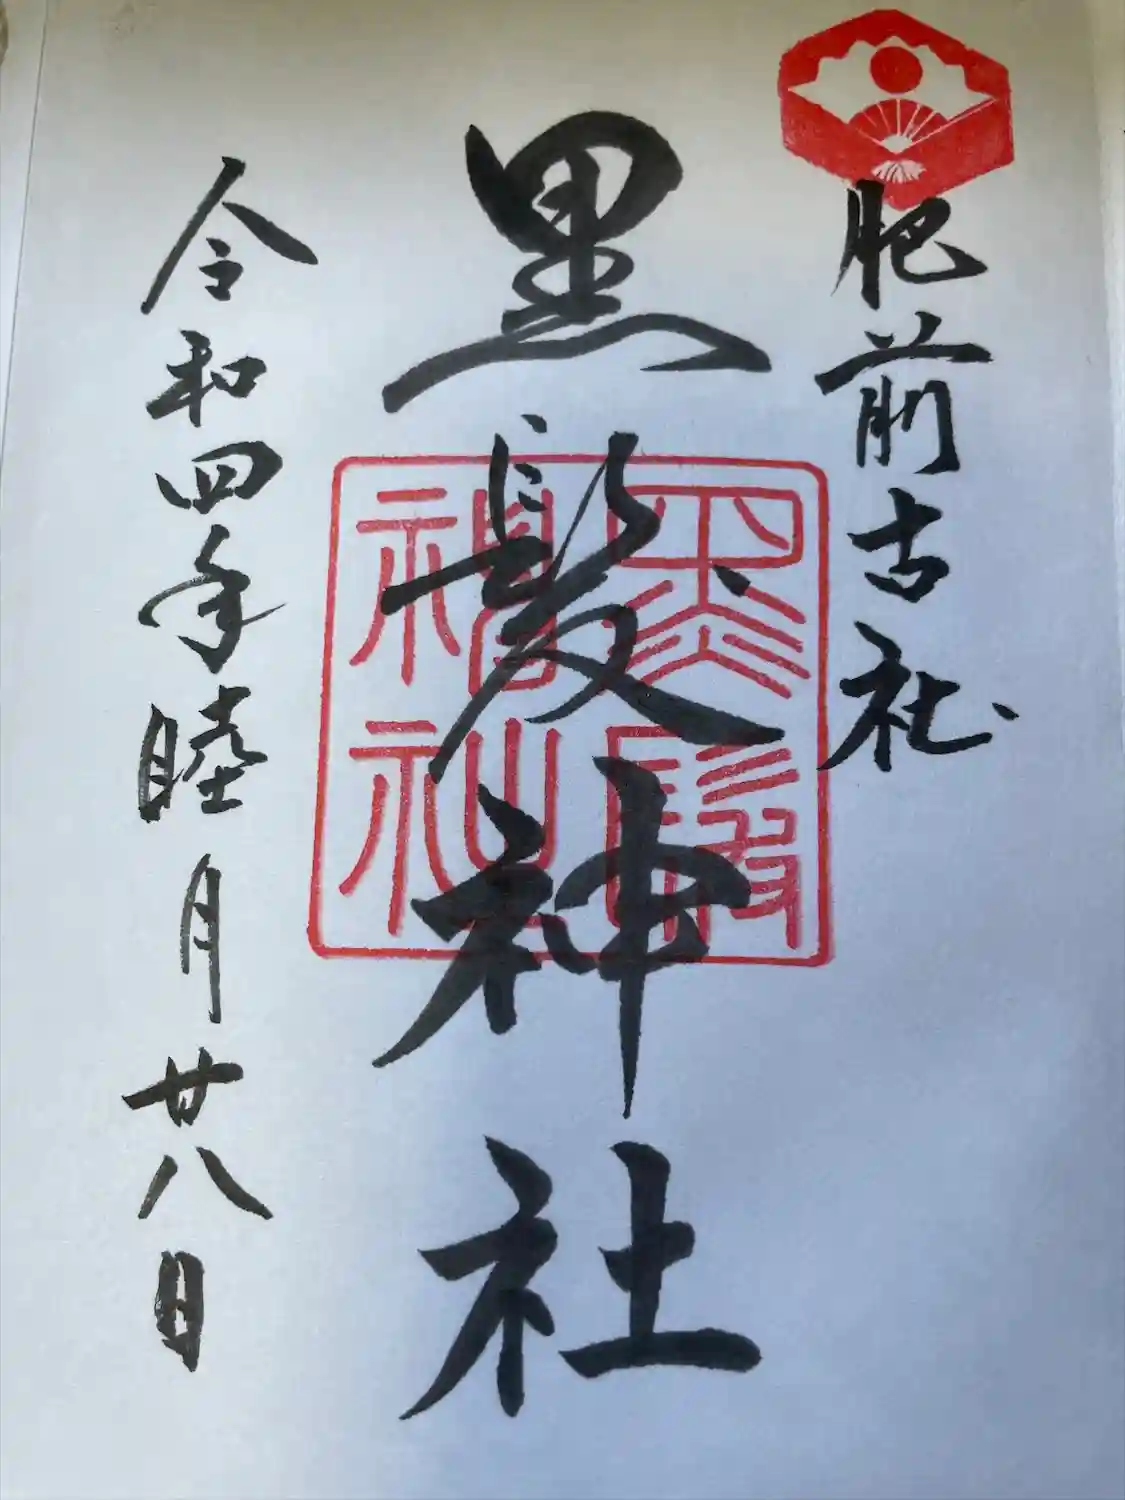 肥前古社
黒髪神社
黒髪神社
令和四年睦月廿八日